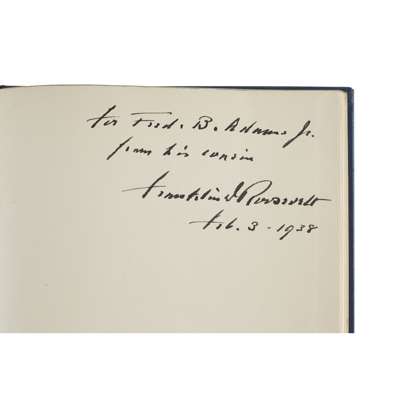 for Fred. B. Adams Jr.
from his cousin
Franklin D Roosevelt
Feb. 3 - 1938